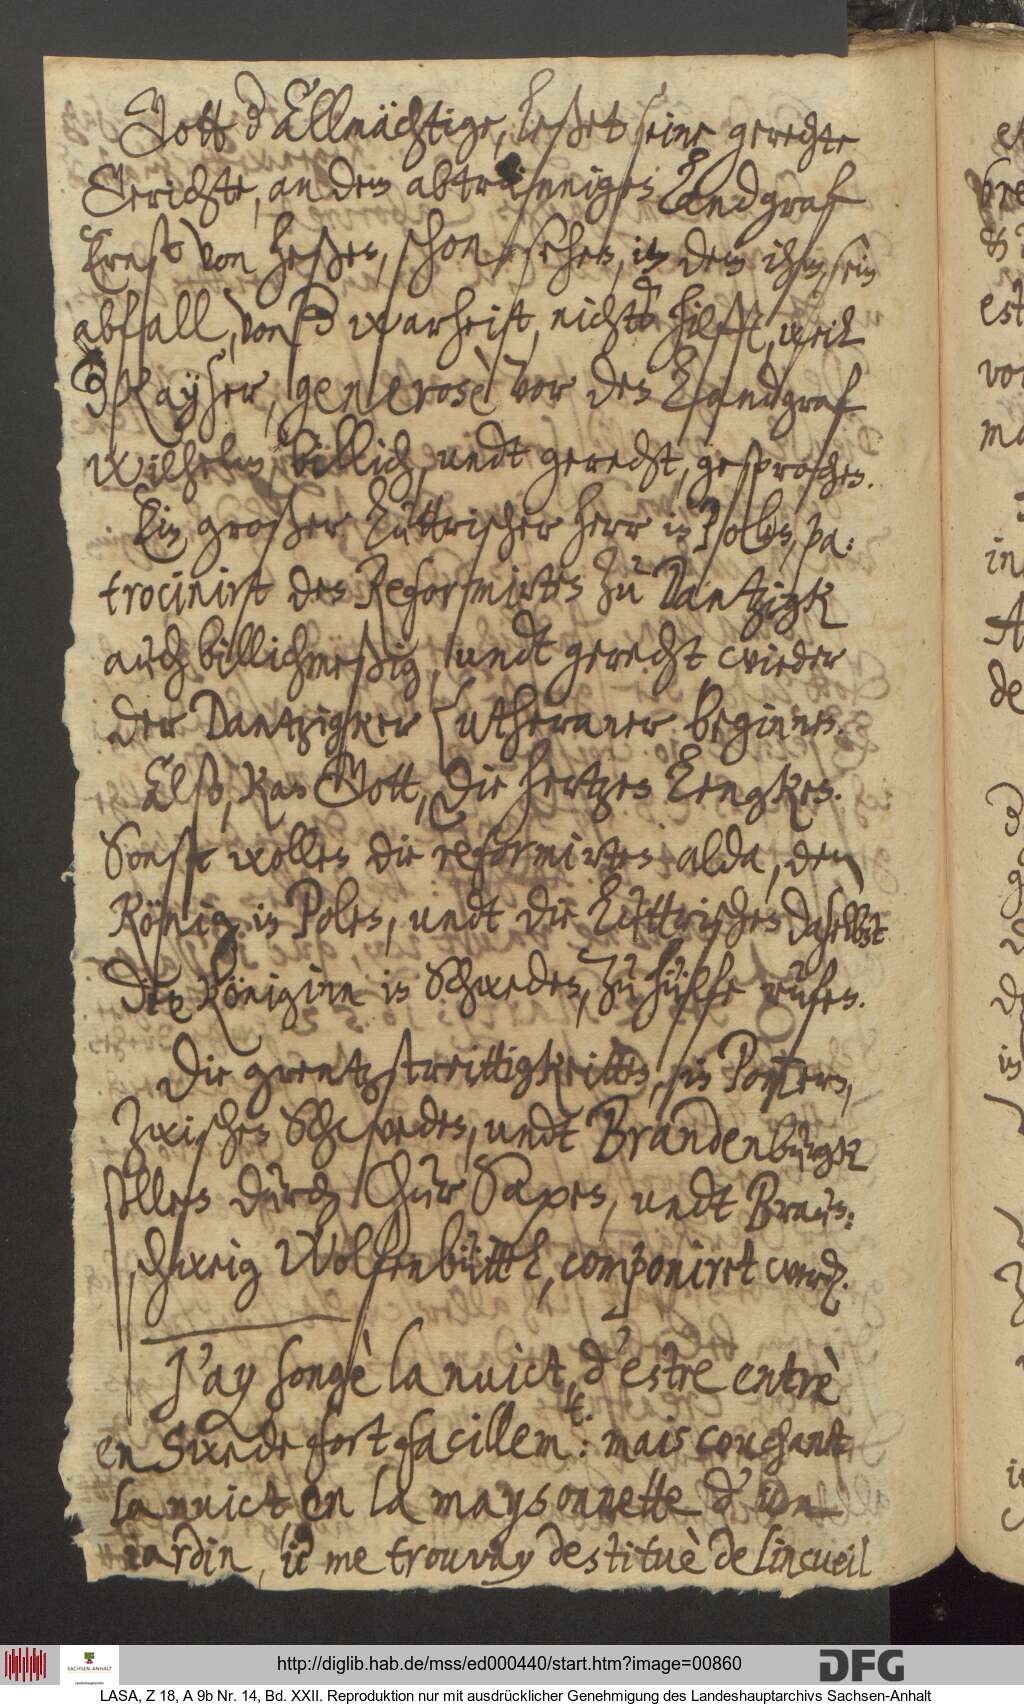 Gott d Allmächtige, leßet seine gerechte
Gerichte, an dem abtrünnigen Landgraf
Ernst von Heßen, schon sehen, in dem ihm, sein
abfall, von d warheit, nichts hilft, weil
d Kayser, generosè vor den Landgraf
Wilhelm, billich, undt gerecht, gesprochen.
Ein großer Luttrischer herr in Polen, pa:
trocinirt den Reformirten zu Dantzigk
auch billichmeßig, undt gerecht wieder
der Dantzigker Lutheraner beginnen.
Also, kan Gott, die hertzen Lengken.
Sonst wollen die reformirten alda, den
König in Polen, undt die Luttrischen daselbst
die Königinn in Schweden, zu hülfe rufen.
Die grentzstreittigkeitten, in Pomern,
zwischen Schweden, undt Brandenburgk
sollen durch Chur Saxen, undt Braun:
schweig Wolfenbüttel, componiret werden.
J'ay songè la nuict, d'estre entrè
en Swede fort facillem.t: mais couchant
la nuict en la maysonnette d'un
iardin, ie me trouvay destituè de linceuil
http://diglib.hab.de/mss/ed000440/start.htm?image=00860
SACHSEN-ANHALT
DFG
LASA, Z 18, A 9b Nr. 14, Bd. XXII. Reproduktion nur mit ausdrücklicher Genehmigung des Landeshauptarchivs Sachsen-Anhalt